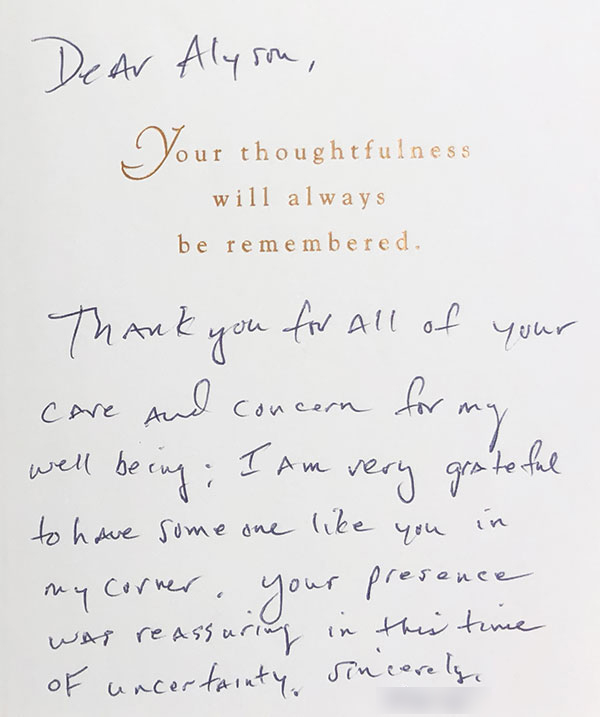 Dear Alyson,
Your thoughtfulness
will always
be remembered.
Thank you for all of your
care and concern for my
well being; I am very grateful
to have some one like you in
my corner. Your presence
was reassuring in this time
of uncertainty. Sincerely,